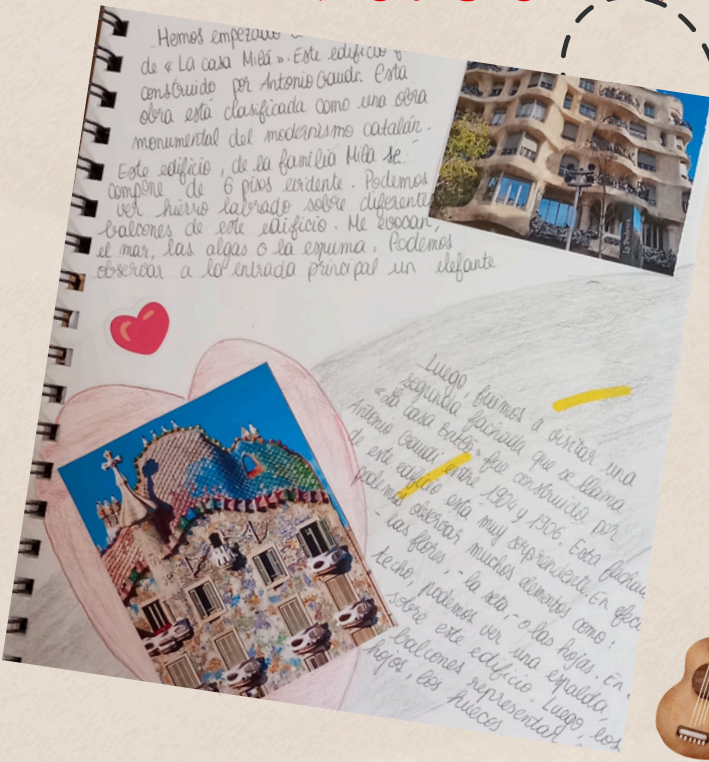 Hemos empezado
de « La casa Milá ». Este edificio
construido por Antonio Gaudí. Esta
obra está clasificada como una obra
monumental del modernismo catalán.
Este edificio, de la familia Milá se
compone de 6 pisos evidente. Podemos
ver hierro labrado sobre diferente
balcones de este edificio. Me evocan,
el mar, las algas o la espuma. Podemos
observar a la entrada principal un elefante
Luego, fuimos a visitar una
segunda fachada que se llama
« La casa Batlló » fue construida por
Antonio Gaudí entre 1904 y 1906. Esta fachada
de este edificio está muy sorprendente. En efec
podemos observar muchos elementos como :
- las flores, - la seta, o las hojas. En
techo, podemos ver una espalda,
sobre este edificio. Luego, los
balcones representan
hojos, los huecos los